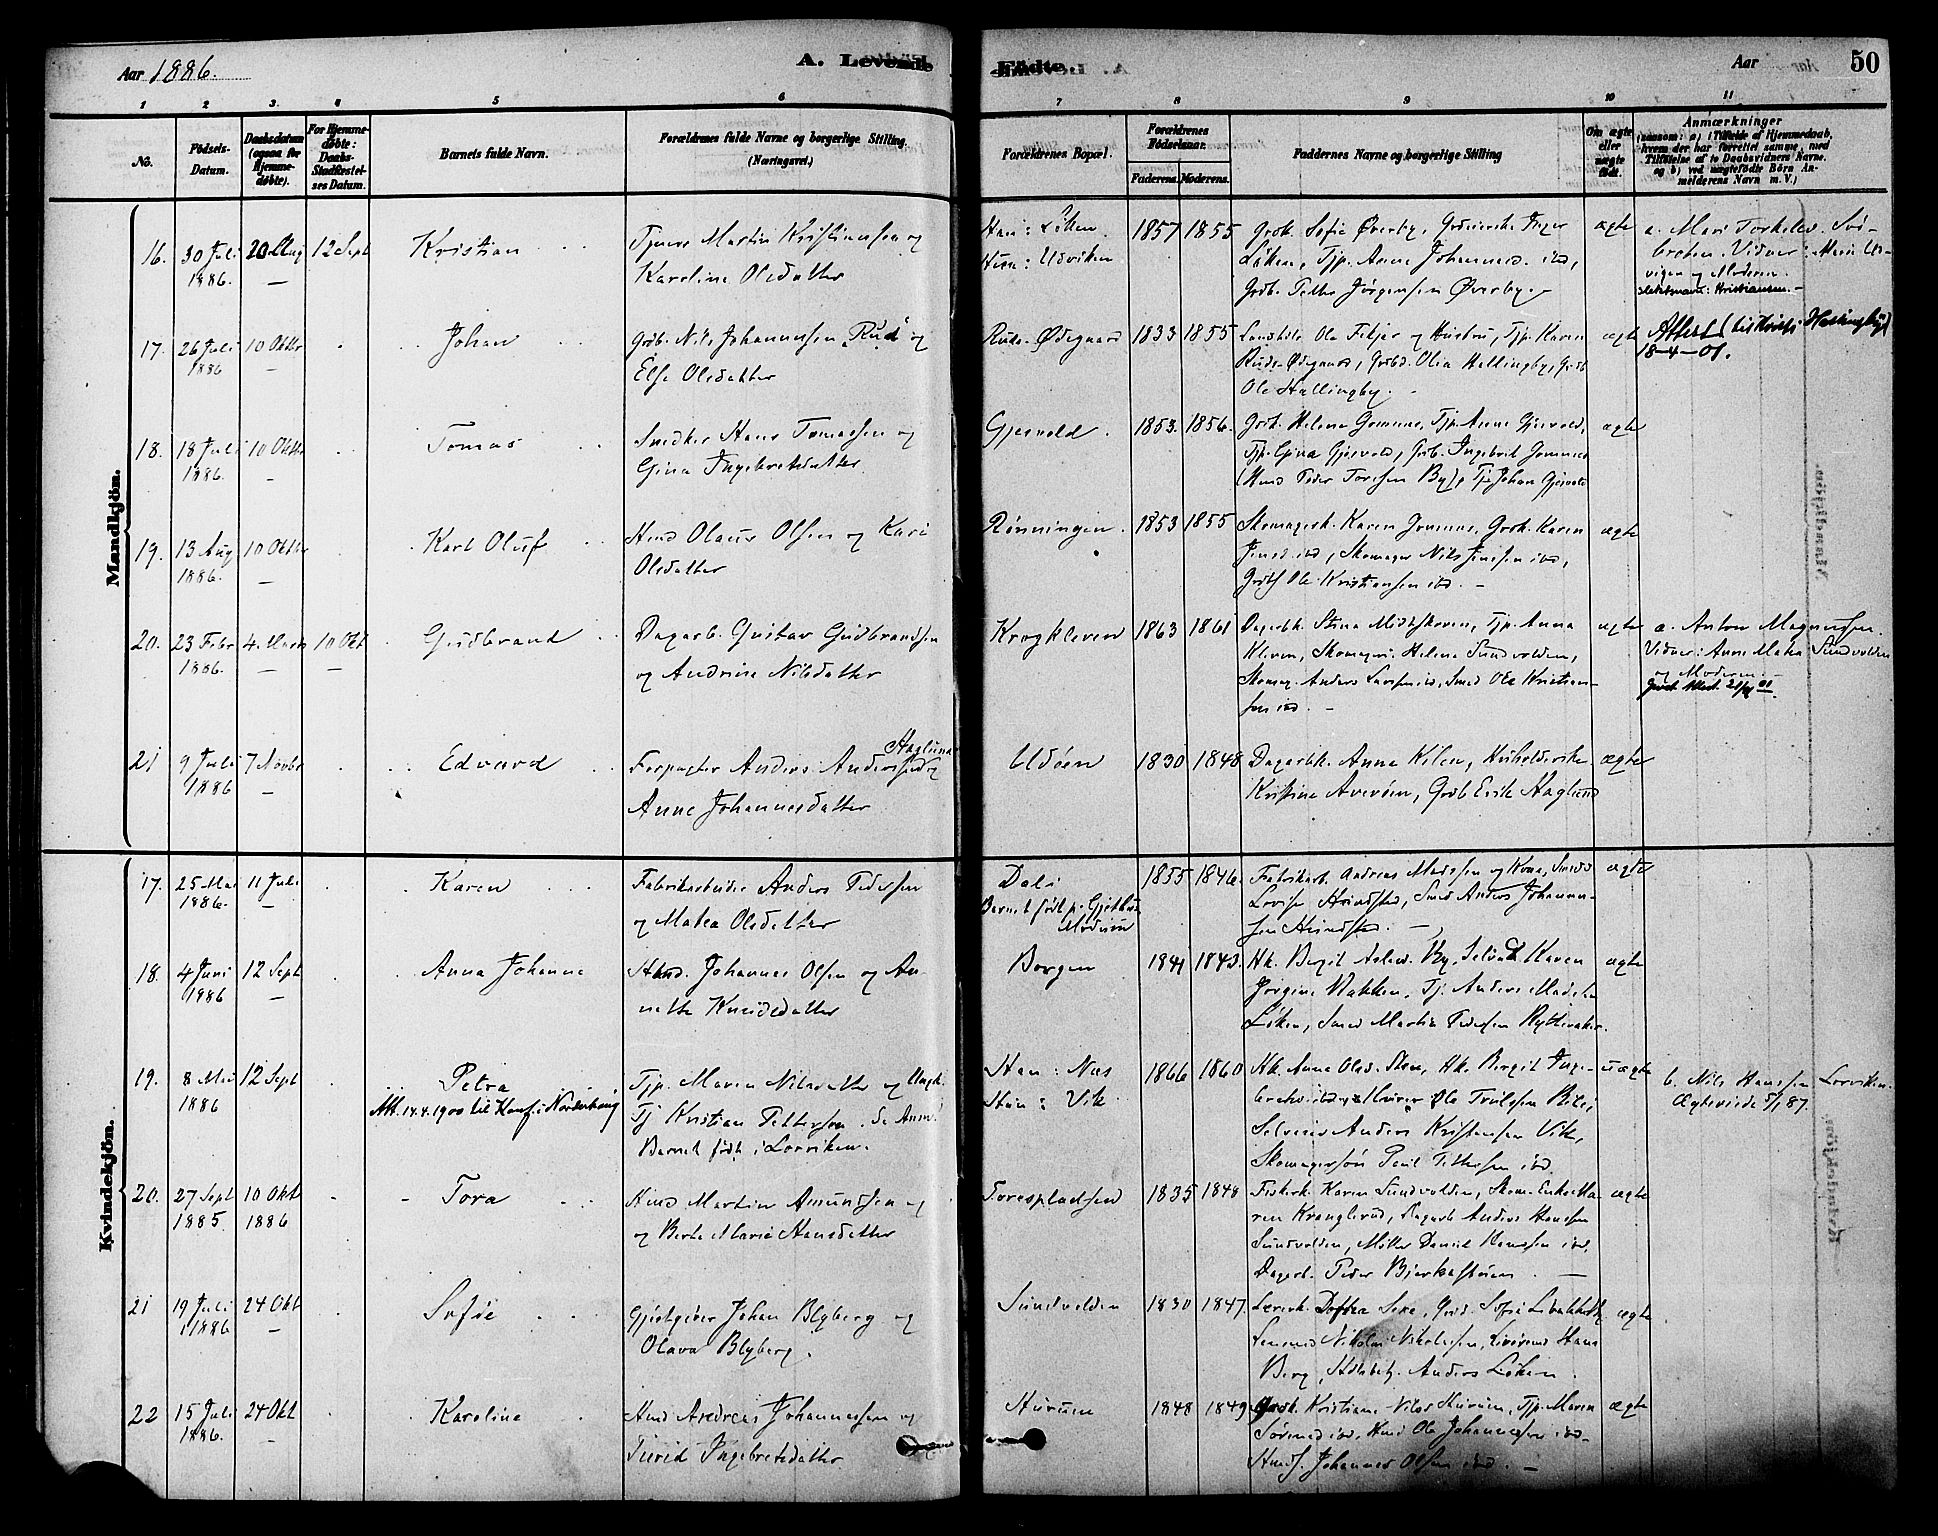 Aar 1886.
A. Levende
Födte.
Aar
50
1
2
3.
4
5
6
7
8
9
10
11
No.
Födsels-
Datum.
Daabsdatum
(ogsaa for
Hjemme-
døbte).
For Hjemme-
døbte:
Daabs-
Stadfæstel-
ses Datum.
Barnets fulde Navn.
Forældrenes fulde Navne og borgerlige Stilling
(Næringsvei.)
Forældrenes Bopæl.
Forældrenes
Födselsaar.
Faderens.
Moderens.
Faddernes Navne og borgerlige Stilling
Om ægte
eller
uægte
født.
Anmærkninger
(saasom: a) i Tilfælde af Hjemmedaab,
hvem der har forrettet samme, med
Tilföielse af to Daabsvidners Navne.
og b) ved uægtefödte Börn An-
melderens Navn m. V.)
Mandkjön.
16.
30 Juli
1886.
20 Aug
—
12 Sept
Kristian
Tjener Martin Kristiansen og
Karoline Olsdatter
Han: Löken
Hun: Udviken
1857
1855
Gbk. Sofie Øverby, Inger
Löken, Tjp. Anne Johannesd. ibd,
Gdb. Petter Jörgensen Øverby.
ægte
a. Mari Torkelsd. Svö-
broten. Vidner: Marie Ud-
vigen og Moderen.
Slektsnavn: Kristiansen.
17.
26 Juli
1886
10 Oktbr
—
Johan
Gdb. Nils Johannessen Rud og
Else Olsdatter
Ruds-Ødegaard
1833
1855
Ole Fekjær og Hustru, Tjp. Karen
Ruds-Ødegaard, Gdbd. Olia Hallingby, Gdb
Ole Hallingby.
ægte
Attest (til Hallingby)
18-4-01.
18.
18 Juli
1886.
10 Oktbr
—
Tomas
Snedker Hans Tomassen og
Gina Ingebretsdatter
Gjesvold.
1853.
1856.
Gbk. Helene Gomnes, Tjp. Anne Gjesvold,
Tjp. Gina Gjesvold, Gdb. Ingebrit Gomnes
(Hmd Peder Toresen By), Tj. Johan Gjesvold
ægte
19.
13 Aug
1886.
10 Oktbr
—
Karl Oluf
Hmd Olaus Olsen og Kari
Olsdatter
Rönningen.
1853
1855
Skomagerk. Karen Gomnes, Gbk. Karen
Jensd. ibd, Skomager Nils Jensen ibd,
Ole Kristiansen ibd. —
ægte
20.
23 Febr
1886.
4. Marts
—
10 Okt
—
Gudbrand
Dagarb. Gustav Gudbrandsen
og Andrine Nilsdatter
Krogkleven
1863
1861
Dagarbk. Stina Midtskoven, Tjp. Anna
Kleven, Helene Sundvolden,
Skomag. Anders Larsen ibd, Smed Ole Kristian-
sen ibd. —
ægte
a. Anton Magnussen.
Vidner: Anne Matea Sundvolden
og Moderen.
21
9 Juli
1886
7 Novbr
—
Edvard
Forpagter Anders Anderssen Haglund og
Anne Johannesdatter
Udöen
1830
1848
Dagarbk. Anne Kilen, Husholderske
Kristine Averöen, Gdb Erik Haglund
ægte
Kvindekjön.
17.
25 Mai
1886.
11 Juli
—
Karen
Fabrikarbeider Anders Pedersen
og Matea Olsdatter
Dali
Barnet födt p. Gjethus
Modum
1855
1846.
Fabrikarb. Andreas Madssen og Kone, Smeds
Lovise Hundstad, Smed Anders Johannes-
sen Hundstad. —
ægte
18.
4 Juni
1886
12 Sept
—
Anna Johanne
Hmd. Johannes Olsen og An-
nette Knudsdatter
Borgen
1841
1843.
Hk. Bergit Asles. By, Karen
Jörgine Nakken, Tj. Anders Madsen
Löken, Smed Martin Pedersen Rytteraker.
ægte
19.
8 Mai
1886
12 Sept
Petra
Att. 14.4.1900 til Konf. i Norderhoug
Tjp. Maren Nilsdatter og Ungk.
Tj Kristian Pettersen. Se Anm!
Barnet födt i Lorviken.
Han: Næs
Hun: Vik
1866
1860
Hk. Anne Olsd. Steen, Hk. Bergit Inge-
bretsd. ibd, Murer Ole Trulsen Bili,
Selveier Anders Kristensen Vik,
Skomagersön Paul Pettersen ibd.
uægte
b. Nils Hanssen Lorviken.
Ægteviede 5/1 87.
20.
27 Sept
1885.
10 Okt
1886
Tora
Hmd Martin Amundsen og
og Berte Marie Hansdatter
Torespladsen
1835
1848
Fiskerk. Karen Sundvolden, Skom. Enke Ma-
ren Kranglerud, Dagarb Anders Hanssen
Sundvolden, Møller Daniel Hanssen ibd.
Dagarb. Peder Bjerkastöen. —
ægte
21
19 Juli
1886
24 Okt
—
Sofie
Gjestgiver Johan Blyberg og
Olava Blyberg.
Sundvolden
1830
1847.
Lærerk. Sofie
Lensmd Nikolai Nikolaysen, Hans
Berg, Anders Löken.
ægte
22
15 Juli
1886.
24 Okt
—
Karoline
Hmd Andreas Johannessen og
Turid Ingebretsdatter
Hurum
1848
1849
Gbk. Kristiane Hurum, Tjp. Maren
ibd, Hmd Ole Johannessen ibd.
Johannes Olsen ibd. —
ægte